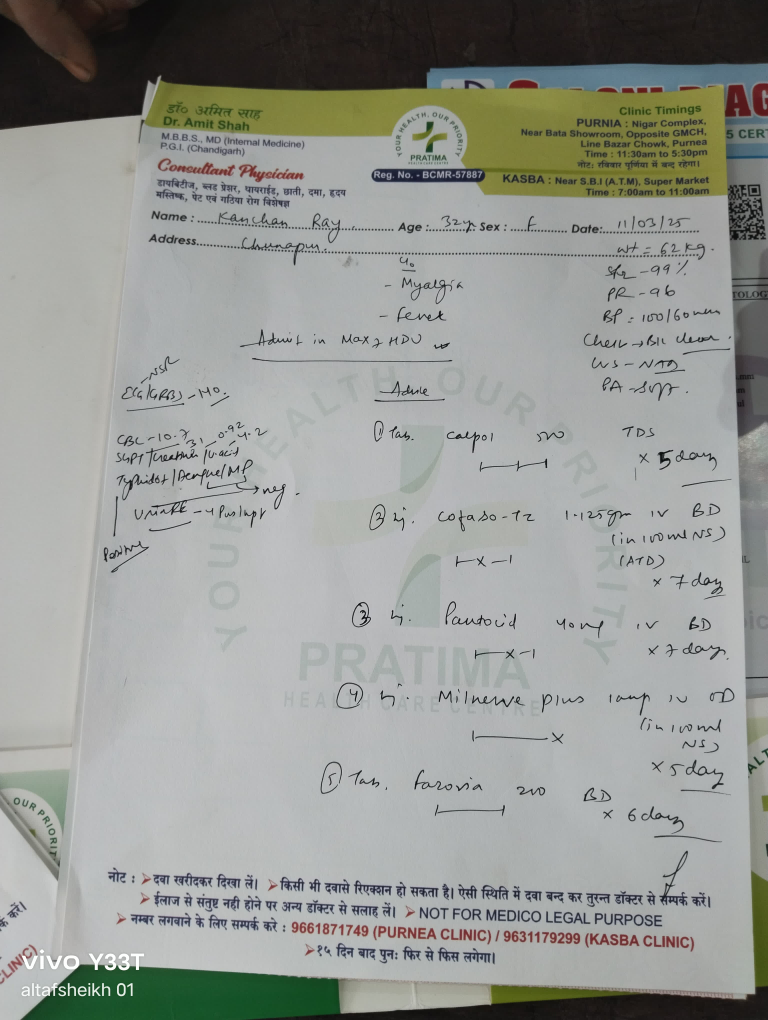 डॉ० अमित साह
Dr. Amit Shah
M.B.B.S., MD (Internal Medicine)
P.G.I. (Chandigarh)
Consultant Physician
डायबिटीज, ब्लड प्रेशर, थायराईड, छाती, दमा, हृदय
मस्तिष्क, पेट एवं गठिया रोग विशेषज्ञ
YOUR HEALTH, OUR PRIORITY
PRATIMA
HEALTH CARE CENTRE
Reg. No. - BCMR-57887
Clinic Timings
PURNIA : Nigar Complex,
Near Bata Showroom, Opposite GMCH,
Line Bazar Chowk, Purnea
Time : 11:30am to 5:30pm
नोट: रविवार पूर्णिया में बन्द रहेगा।
KASBA : Near S.B.I (A.T.M), Super Market
Time : 7:00am to 11:00am
Name : Kanchan Ray Age : 32y Sex : F Date: 11/03/25
Address Chunapur
wt = 62 kg.
- 99 %
PR - 96
BP = 100/60 mm
Chest → B/L clear
PA - soft
- Myalgia
- fever
Admit in HDU
NSR
CBC - 10.7
31 0.92 4.2
SGPT / Creatinine / U. acid
Typhidot / Dengue / MP
→ neg.
Positive
Advice
① Tab. Calpol 500 TDS
x 5 days
② Inj. Cofaso-TZ 1.125gm IV BD
(in 100ml NS)
(ATD)
x 7 days
③ Inj. Pantocid 40mg IV BD
x 7 days
④ Inj. Milnerve plus 1amp IV OD
(in 100ml
NS)
x 5 days
⑤ Tab. Farovia 200 BD
x 6 days
YOUR HEALTH OUR PRIORITY
PRATIMA
HEALTH CARE CENTRE
नोट : ➤ दवा खरीदकर दिखा लें। ➤ किसी भी दवासे रिएक्शन हो सकता है। ऐसी स्थिति में दवा बन्द कर तुरन्त डॉक्टर से सम्पर्क करें।
➤ ईलाज से संतुष्ट नही होने पर अन्य डॉक्टर से सलाह लें। ➤ NOT FOR MEDICO LEGAL PURPOSE
➤ नम्बर लगवाने के लिए सम्पर्क करे : 9661871749 (PURNEA CLINIC) / 9631179299 (KASBA CLINIC)
➤ १५ दिन बाद पुनः फिर से फिस लगेगा।
OUR PRIORITY
CLINIC)
vivo Y33T
altafsheikh 01